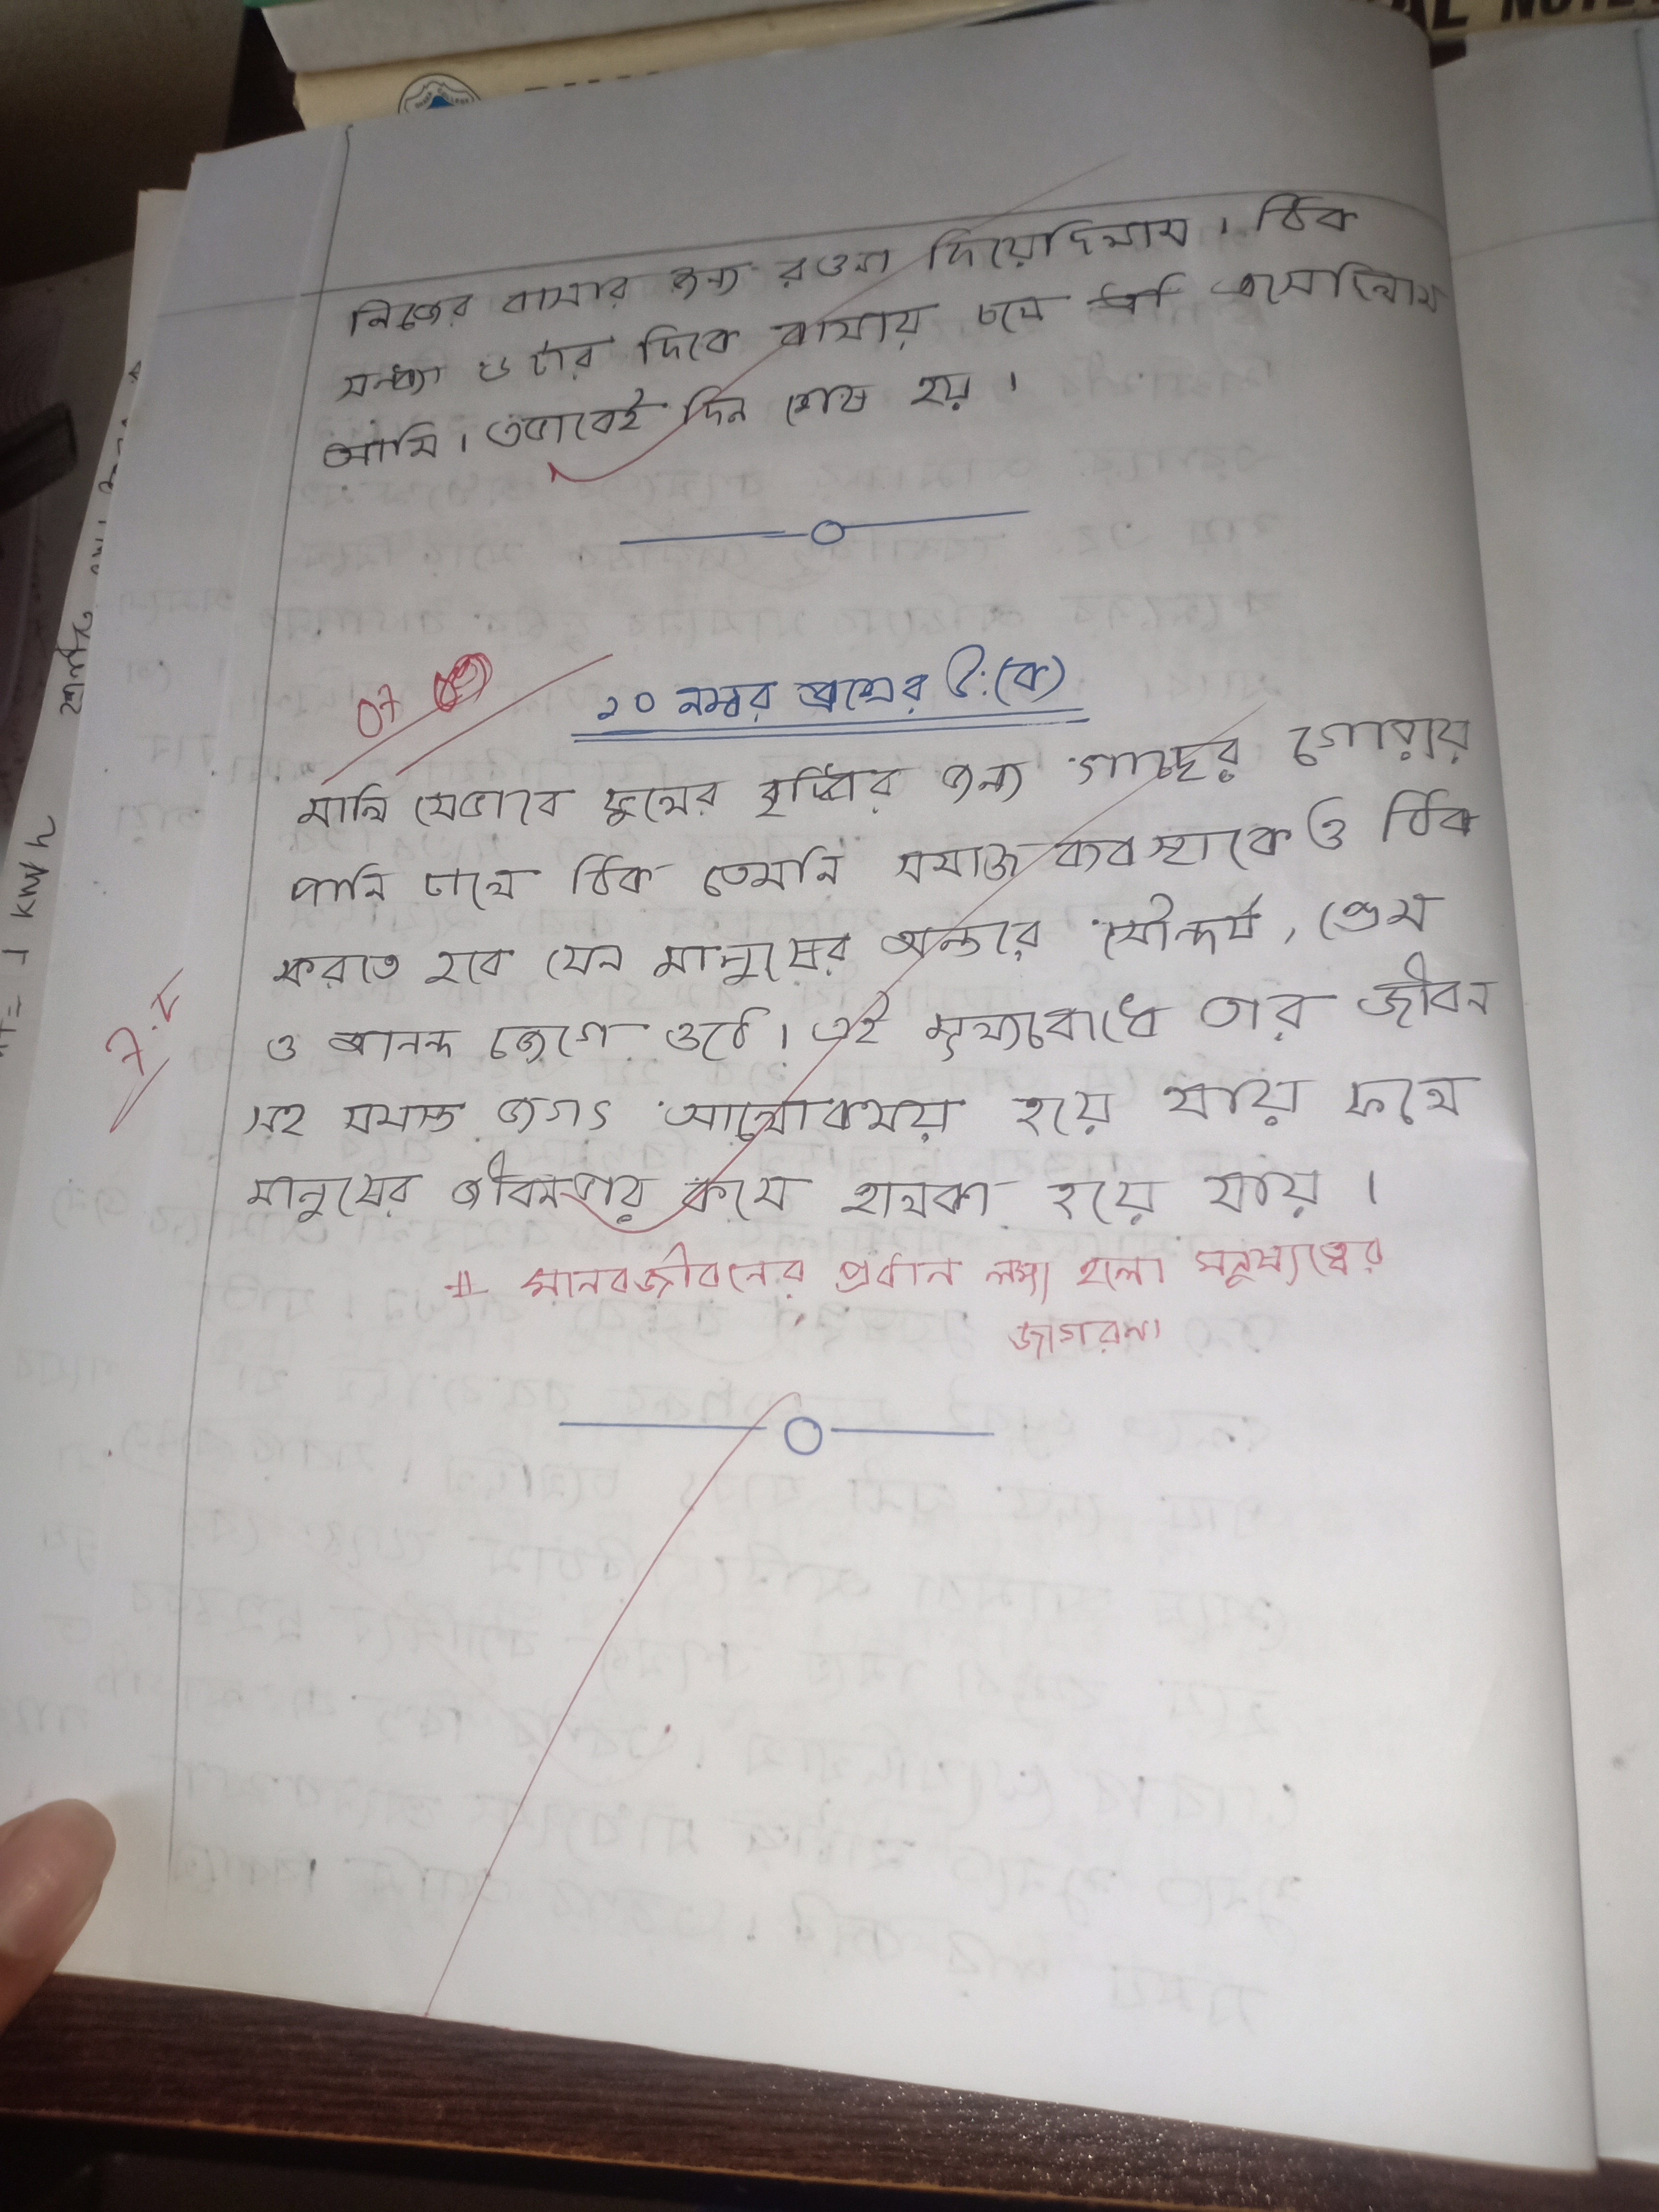 নিজের বাসার জন্য রওনা দিয়েছিলাম। ঠিক
সন্ধ্যা ৬ টার দিকে বাসায় চলে এসেছিলাম
আমি। এভাবেই দিন শেষ হয়।
07
১০ নম্বর প্রশ্নের উ:(ক)
মালি যেভাবে ফুলের বৃদ্ধির জন্য গাছের গোরায়
পানি ঢালে ঠিক তেমনি সমাজ ব্যবস্থাকেও ঠিক
করতে হবে যেন মানুষের অন্তরে সৌন্দর্য, প্রেম
ও আনন্দ জেগে ওঠে। এই মূল্যবোধে তার জীবন
সহ সমস্ত জগৎ আলোকময় হয়ে যায় ফলে
মানুষের জীবনভার কমে হালকা হয়ে যায়।
# মানবজীবনের প্রধান লক্ষ্য হলো মনুষ্যত্বের
জাগরন।
= 1 km/h